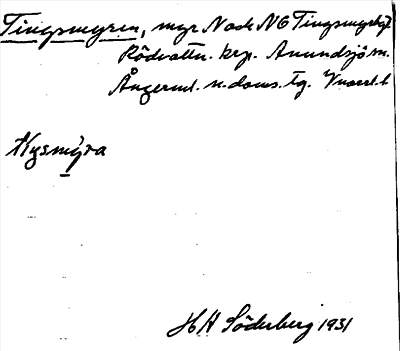 Tingsmyren, myr N och NÖ Tingsmyrbgt
Rödvattn. krp. Anundsjö sn.
Ångerml. n. doms. tg. Vnorrl. l.
Hysmy̱ra
HH Söderberg 1931